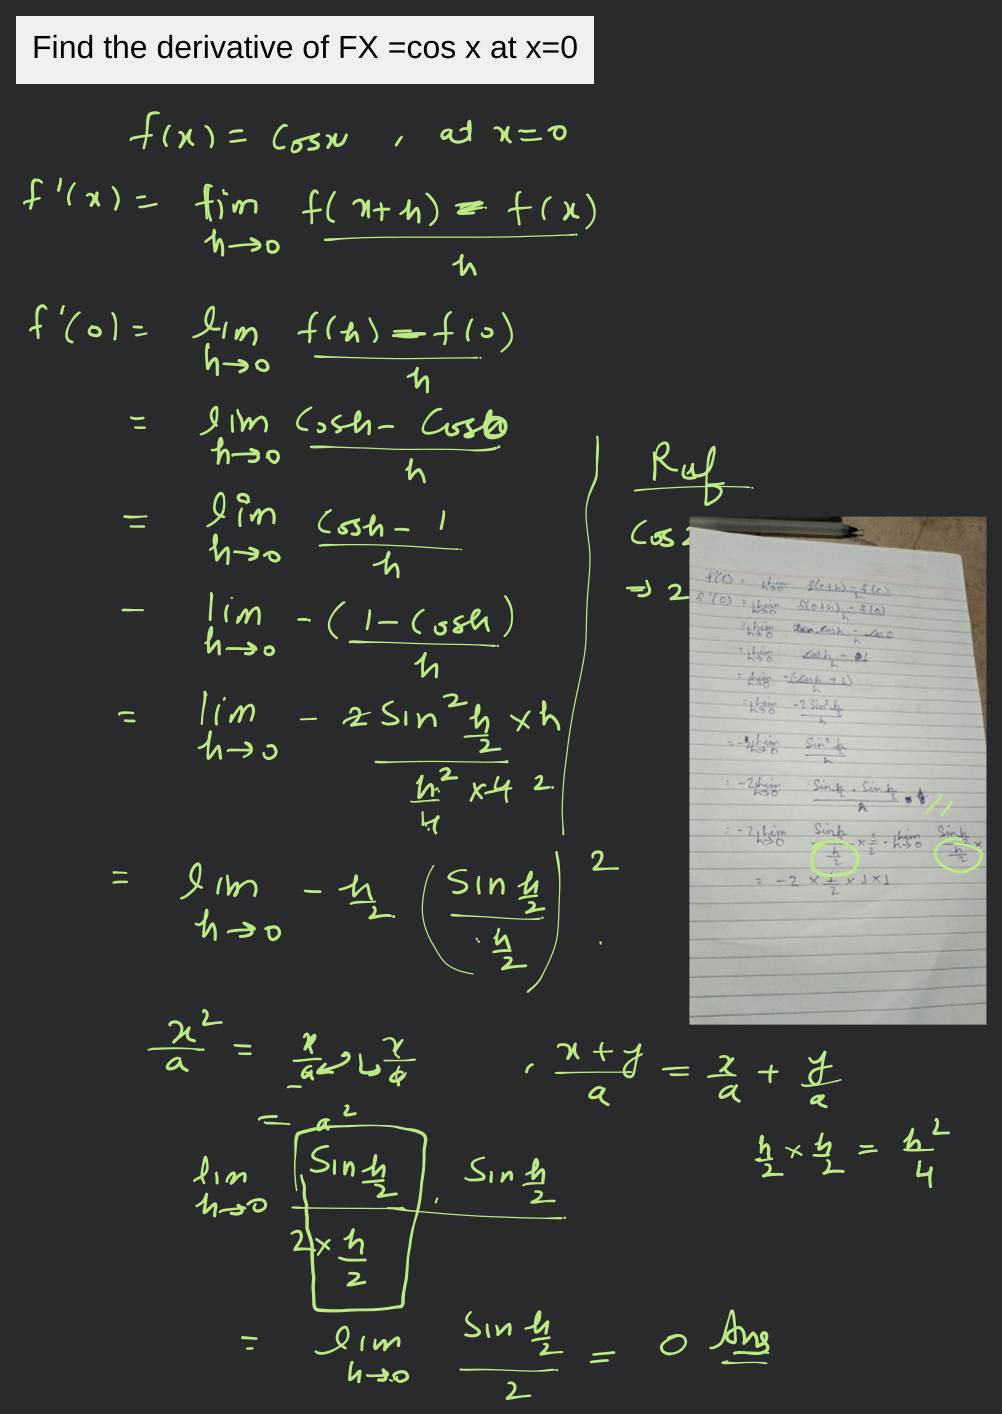 Find the derivative of FX =cos x at x=0
f(x) = Cosx , at x=0
f'(x) = lim h→0 f(x+h) - f(x) / h
f'(0) = lim h→0 f(h) - f(0) / h
= lim h→0 Cosh - Cos0 / h
= lim h→0 Cosh - 1 / h
- lim h→0 - (1 - Cosh) / h
= lim h→0 - 2 Sin² h/2 × h / h²/4 × 4 2
= lim h→0 - h/2 (Sin h/2 / h/2)²
Ruf
Cos
⇒ 2
f'(c) = lim h→0 f(c+h) - f(c) / h
f'(0) = lim h→0 f(0+h) - f(0) / h
= lim h→0 cosh - cos0 / h
= lim h→0 cosh - 1 / h
= lim h→0 -(cosh + 1) / h
= lim h→0 -2 Sin² h/2 / h
= -2 lim h→0 Sin² h/2 / h
= -2 lim h→0 Sin h/2 . Sin h/2 / h
= -2 lim h→0 Sin h/2 / h/2 × 1/2 . lim h→0 Sin h/2 / h/2 ×
= -2 × 1/2 × 1 × 1
x²/a = x/a x/a
= a²
, x+y / a = x/a + y/a
h/2 × h/2 = h²/4
lim h→0 Sin h/2 . Sin h/2 / 2 × h/2
= lim h→0 Sin h/2 / 2 = 0 Ans